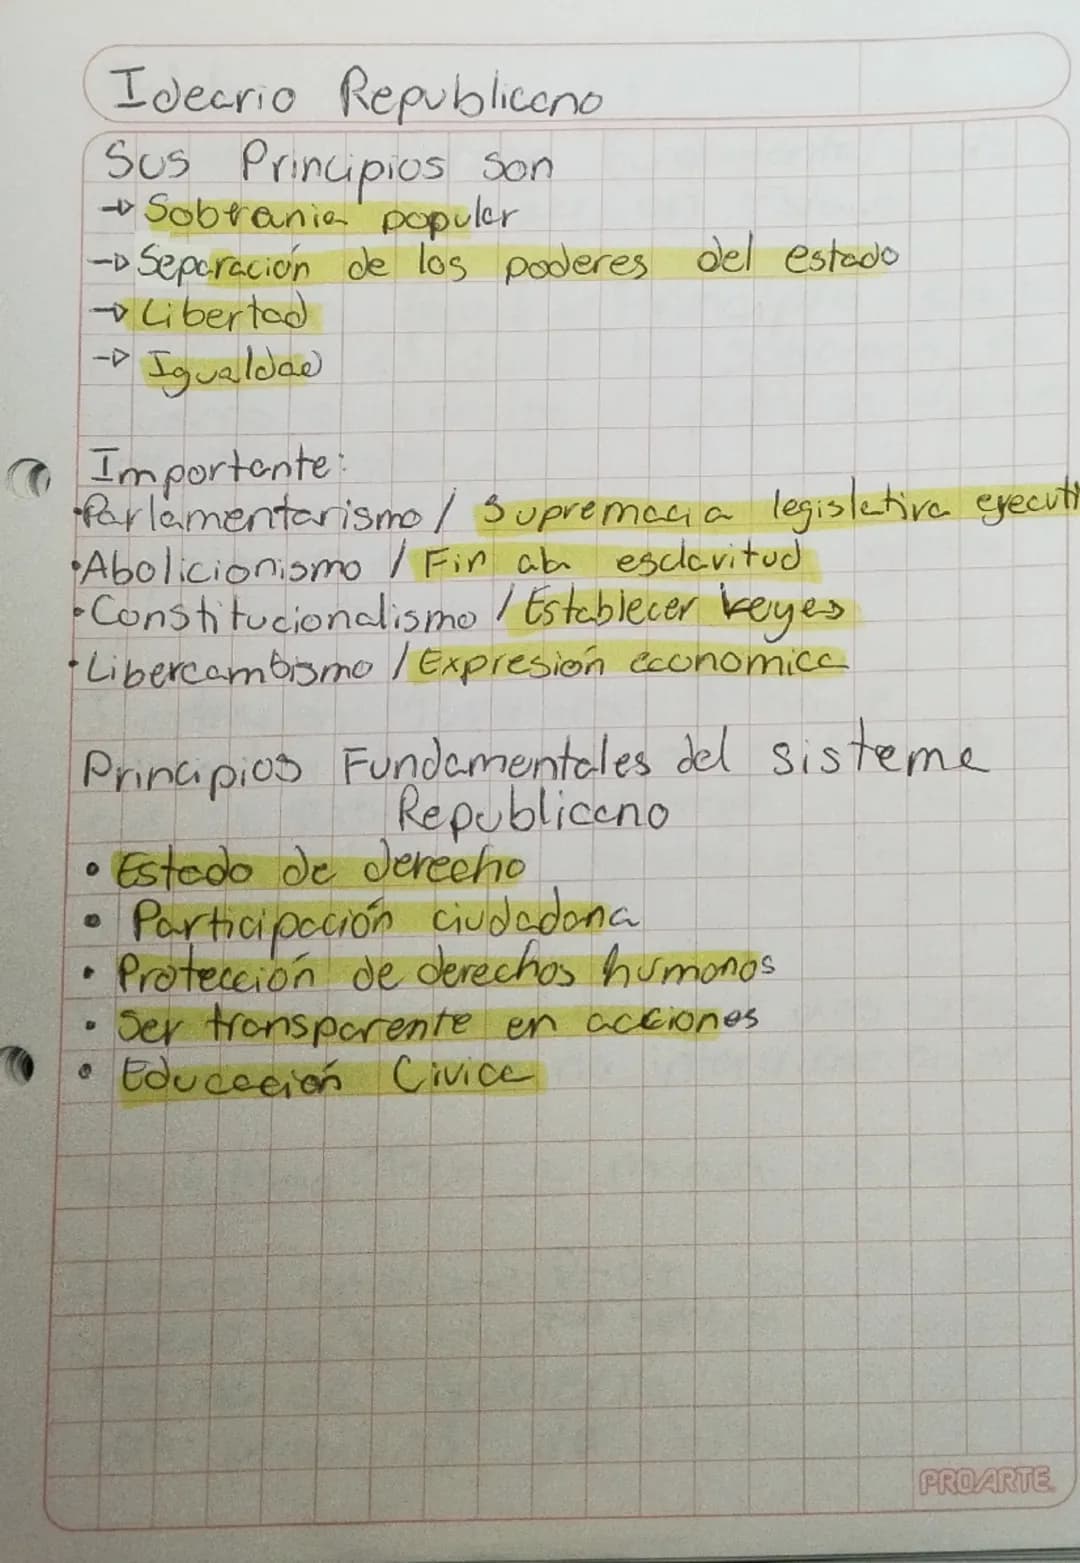 Ideario Republicano
Sus Principios son
→ Sobrania popular
→ Separación de los poderes del estado
→ Libertad
→ Igualdad
Importante:
·Parlamentarismo / Supremacia legislativa ejecuti
·Abolicionismo / Fin ala esclavitud
·Constitucionalismo / Establecer leyes
·Libercambismo / Expresión economica
Principios Fundamentales del sistema
Republicano
• Estado de derecho
• Participación ciudadana
• Protección de derechos humanos
• Ser transparente en acciones
• Educación Civica
PROARTE